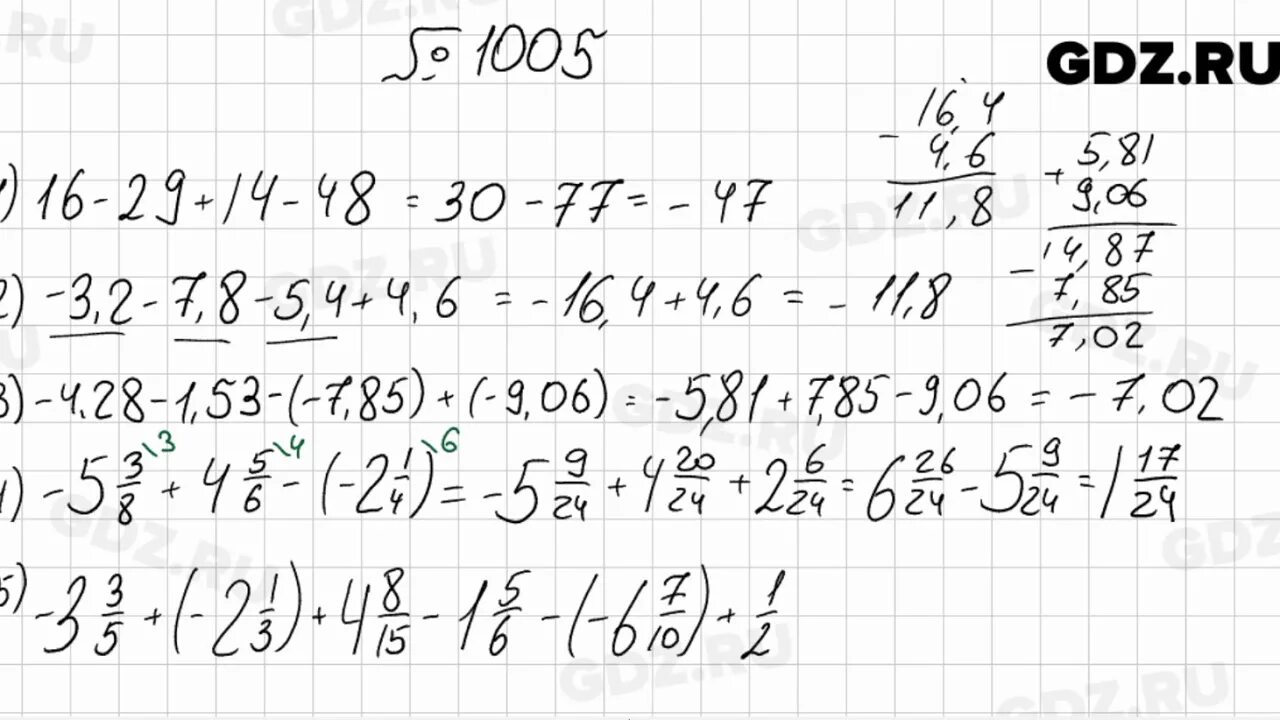 № 1005
GDZ.RU
1) 16 - 29 + 14 - 48 = 30 - 77 = - 47
16,4
- 4,6
11,8
+ 5,81
9,06
14,87
- 7,85
7,02
2) -3,2 - 7,8 - 5,4 + 4,6 = - 16,4 + 4,6 = - 11,8
3) -4,28 - 1,53 - (-7,85) + (-9,06) = -5,81 + 7,85 - 9,06 = - 7,02
4) -5 3/8 \3 + 4 5/6 \4 - (-2 1/4) \6 = -5 9/24 + 4 20/24 + 2 6/24 = 6 26/24 - 5 9/24 = 1 17/24
5) -3 3/5 + (-2 1/3) + 4 8/15 - 1 5/6 - (-6 7/10) + 1/2